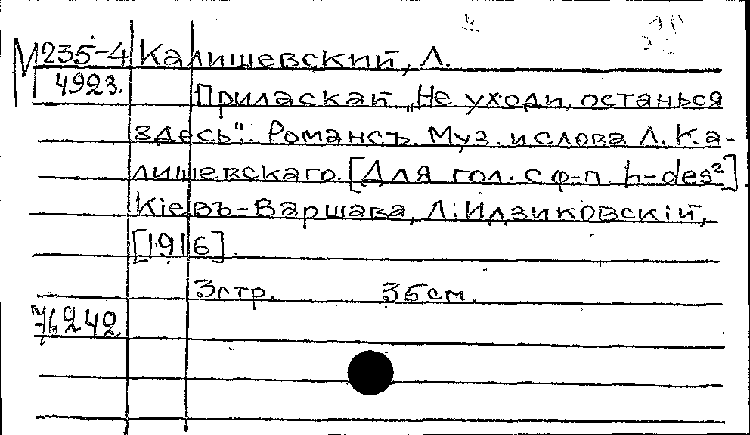 М 235-4 Калишевский, Л.
4923.
Приласкай „Не уходи, останься
здесь". Романсъ. Муз. и слова Л. Ка-
лишевскаго. [Для гол. с ф-п. h-des²]
Кіевъ-Варшава, Л. Идзиковскій,
[1916].
3 стр. 35 см.
76242